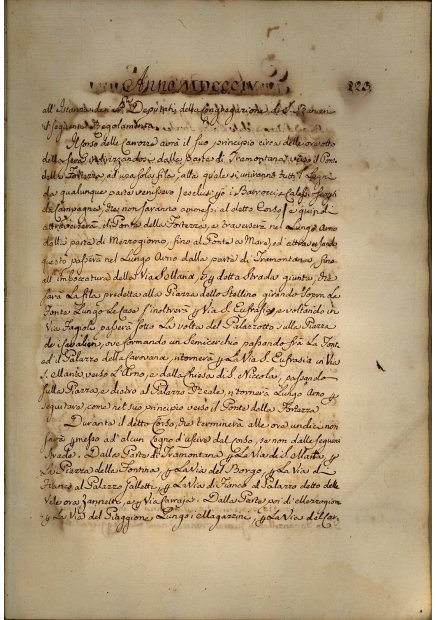 Anno MDCCCIV 223
all'Istanza dei Deputati della Congregazione di S. Ranieri
il seguente Regolamento
Il corso delle Carrozze avrà il suo principio circa delle ore otto
della sera indirizzandosi dalla parte di Tramontana verso il Ponte
della Fortezza ad una sola fila, alla quale si uniranno tutti i Legni
da qualunque parte venissero esclusi però i Barrocci, e Calessi
da Campagna, che non saranno ammessi al detto Corso, e quindi
attraverserà il Ponte della Fortezza, e traverserà nel Lung'Arno
dalla parte di Mezzogiorno, fino al Ponte a Mare, ed attraversando
questo passerà nel Lungo Arno dalla parte di Tramontana, fino
all'imboccatura della Via S. Anna, e p detta Strada giunta, che
sarà La fila predetta alla Piazza dello Stellino girando sopra la
Fonte Lungo Le Case s'inoltrerà p Via S. Eufrasia, e voltando in
Via Fagioli passerà sotto La volta del Palazzotto sulla Piazza
de' Cavalieri, ove formando un Semicerchio passando fra La Fonte
ed il Palazzo della Carovana, ritornerà p La Via S. Eufrasia in Via
S. Maria verso L'Arno, e dalla Chiesa di S. Niccola, passando
sulla Piazza, e dietro al Palazzo Reale, ritornerà Lungo Arno p
seguitare, come nel suo principio verso il Ponte della Fortezza
Durante il detto Corso, che terminerà alle ore undici non
sarà pmesso ad alcun Legno d'uscire dal corso, se non dalle seguenti
Strade. Dalla Parte di Tramontana p La Via di S. Marta, p
La Piazza della Fontina, p La Via del Borgo, p La Via di
Fianco al Palazzo Galletti, p La Via di Fianco al Palazzo detto delle
Vele ora Zannetti, a p Via Cavaja. Dalla Parte poi di Mezzogiorno
p La Via del Piaggione Lungo i Magazzini, p La Via del Car-